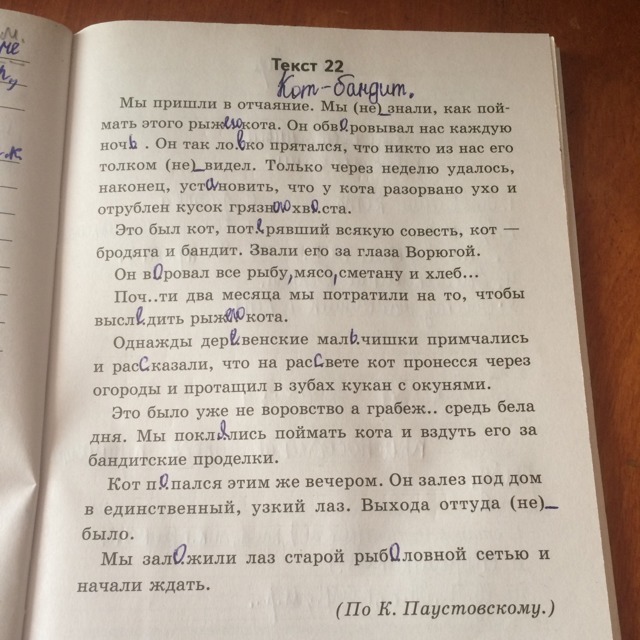 м.
че
Текст 22
Кот-бандит.
Мы пришли в отчаяние. Мы (не)_знали, как пой-
мать этого рыжего кота. Он обворовывал нас каждую
ночь . Он так ловко прятался, что никто из нас его
толком (не)_видел. Только через неделю удалось,
наконец, установить, что у кота разорвано ухо и
отрублен кусок грязного хвоста.
Это был кот, потерявший всякую совесть, кот —
бродяга и бандит. Звали его за глаза Ворюгой.
Он воровал все рыбу,мясо,сметану и хлеб...
Поч..ти два месяца мы потратили на то, чтобы
выследить рыжего кота.
Однажды деревенские мальчишки примчались
и рассказали, что на рассвете кот пронесся через
огороды и протащил в зубах кукан с окунями.
Это было уже не воровство а грабеж.. средь бела
дня. Мы поклялись поймать кота и вздуть его за
бандитские проделки.
Кот попался этим же вечером. Он залез под дом
в единственный, узкий лаз. Выхода оттуда (не)_
было.
Мы заложили лаз старой рыболовной сетью и
начали ждать.
(По К. Паустовскому.)